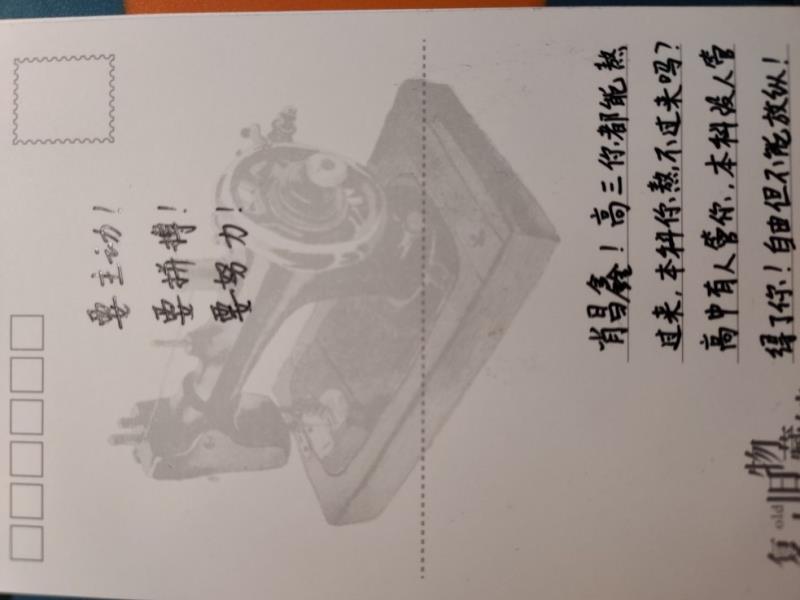 要主动!
要拼搏!
要努力!
肖昌鑫!高三你都能熬
过来,本科你熬不过来吗?
高中有人管你,本科没人管
得了你!自由但不能放纵!
old
旧物